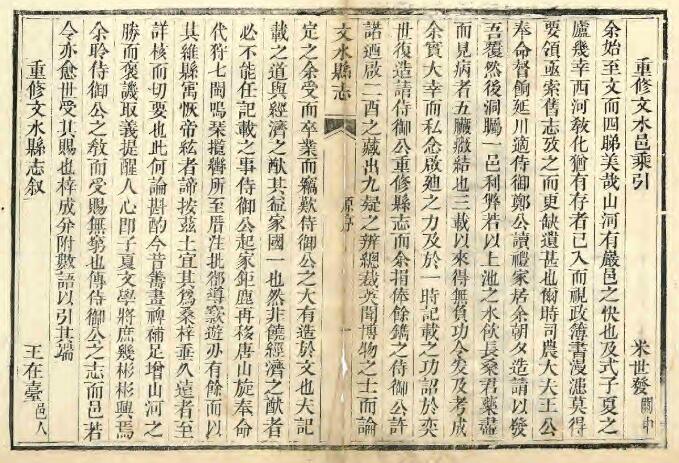 重修文水邑乘引
米世發關中
余始至文而四睇美哉山河有嚴邑之快也及式子夏之
廬幾幸西河敎化猶有存者已入而視政簿書漫漶莫得
要領亟索舊志攷之而更缺遺甚也徜時司農大夫王公
奉命督餉延川適侍御鄭公讀禮家居余朝夕造請以發
吾覆然後洞矚一邑利弊若以上池之水飲長桑君藥盡
而見病者五臟癥結也三載以來得無負功令发及考成
余實大幸而私念啟廸之力及於一時記載之功詔於奕
世復造請侍御公重修縣志而余捐俸餘鐫之侍御公許
諾廼啟二酉之藏出九疑之辨總裁英聞博物之士而論
文水縣志
原序
一
定之余受而卒業而繙歎侍御公之大有造於文也夫記
載之道與經濟之猷其益家國一也然非饒經濟之猷者
必不能任記載之事侍御公起家鉅鹿再移唐山旋奉命
代狩七閩鳴琹攬轡所至厝注批郤導窾遊刃有餘而以
其維縣寓恢帝紘者諦按茲土宜其爲桑梓垂久遠者至
詳核而切要也此何論斟酌今昔善畫裨補足增山河之
勝而褒譏取義提醒人心卽子夏文學將庶幾彬彬興焉
余聆侍御公之敎而受賜無窮也傳侍御公之志而邑若
令亦愈世受其賜也梓成分附數語以引其端
重修文水縣志叙
王在臺邑人